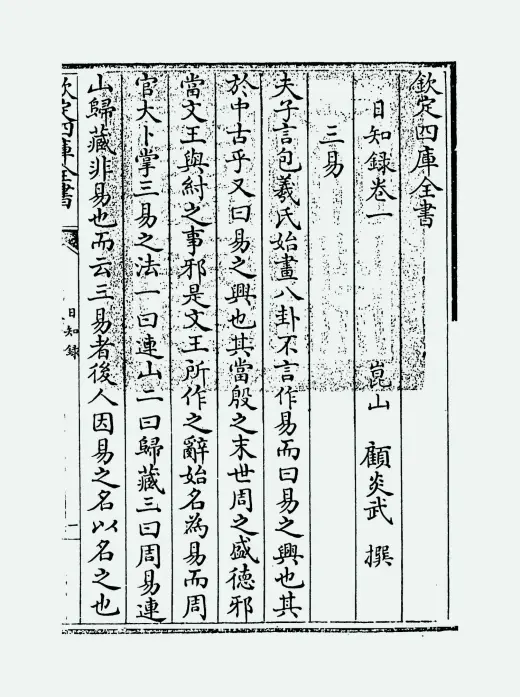 欽定四庫全書
日知録卷一
崑山 顧炎武 撰
三易
夫子言包羲氏始畫八卦不言作易而曰易之興也其
於中古乎又曰易之興也其當殷之末世周之盛德邪
當文王與紂之事邪是文王所作之辭始名為易而周
官大卜掌三易之法一曰連山二曰歸藏三曰周易連
山歸藏非易也而云三易者後人因易之名以名之也
欽定四庫全書
日知録